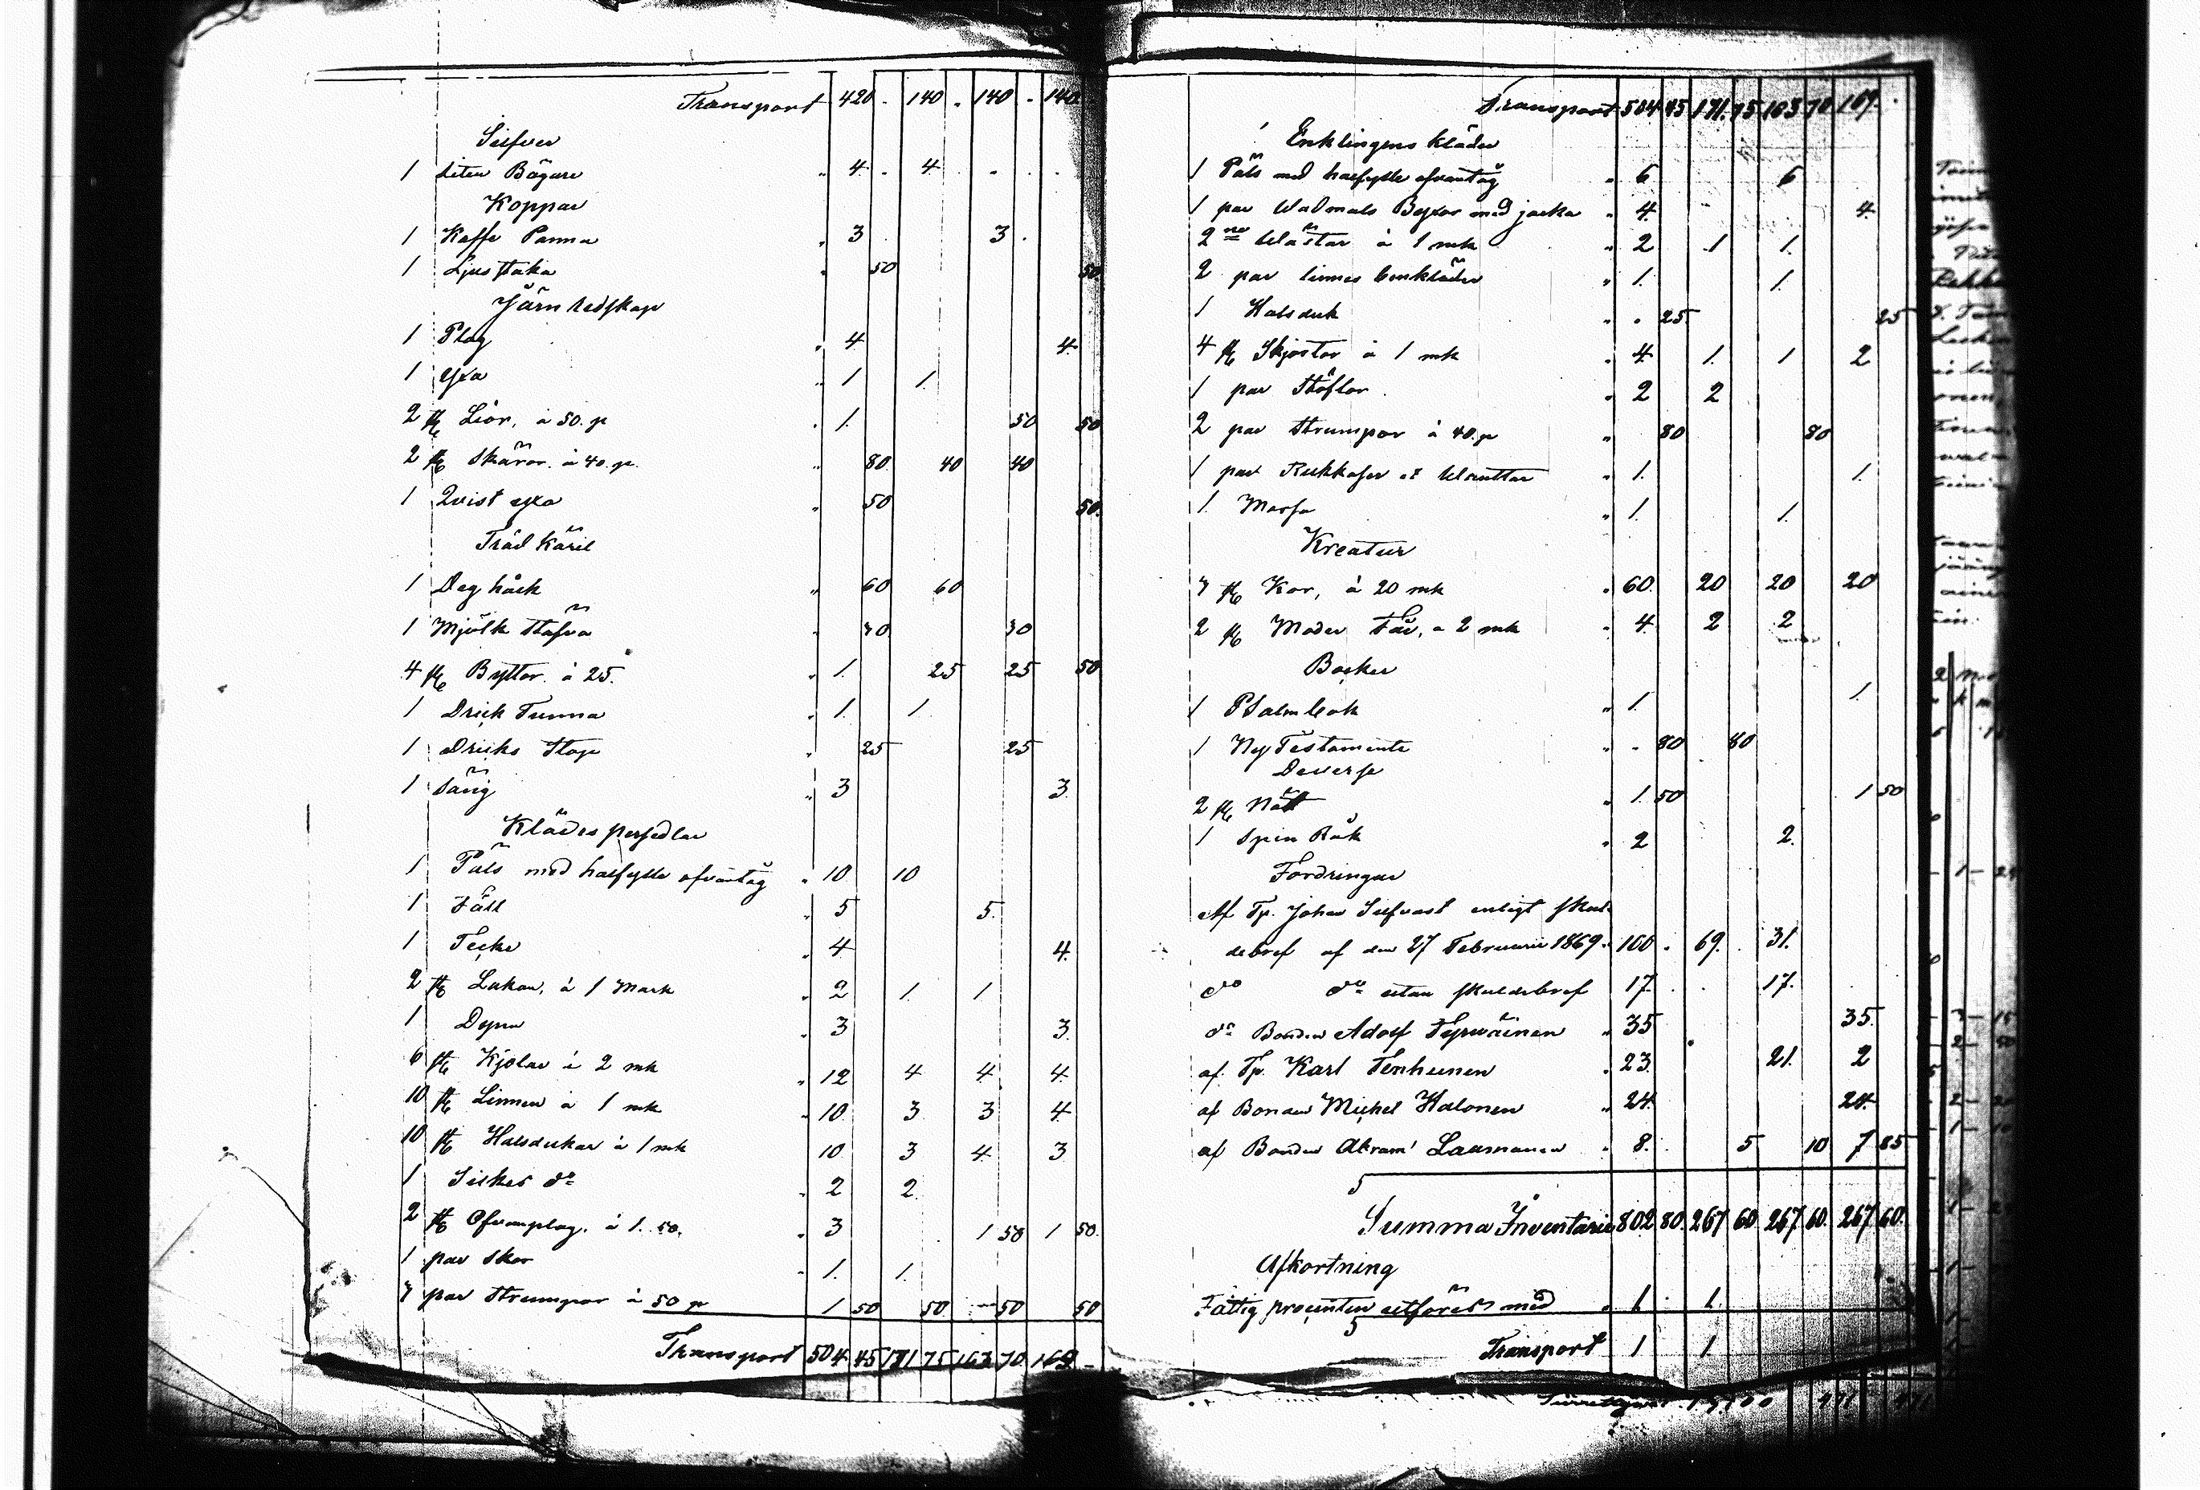 Transport 420 . 140 . 140 . 140
Silfver
1 Liten Bägare " 4 . 4 . . .
Koppar
1 Kaffe Panna " 3 . 3 .
1 Ljusstaka " 50 50
Järn redskap
1 Plog " 4 4
1 Yxa " 1 1
2 st Liör, à 50 p " 1 50 50
2 st Skäror à 40 p. " 80 40 40
1 Qvist yxa " 50 50
Träd Käril
1 Deg håck " 60 60
1 Mjölk Stäfva " 30 30
4 st Byttor à 25. " 1 25 25 50
1 Drick Tunna " 1 1
1 Dricks Stop " 25 25
1 Säng " 3 3
Klädes persedlar
1 Päls med halfylle öfvertåg " 10 10
1 Fäll " 5 5
1 Täcke " 4 4
2 st Lakan, à 1 Mark " 2 1 1
1 Dyna " 3 3
6 st Kjolar à 2 mk " 12 4 4 4
10 st Linnen à 1 mk " 10 3 3 4
10 st Halsdukar à 1 mk 10 3 4 3
1 Silkes do " 2 2
2 st à 1. 50. " 3 1 50 1 50
1 par Skor " 1 1
3 par Strumpor à 50 p 1 50 50 50 50
Transport 504 45 171 75 163 70 169 -
Transport 504 45 171 75 163 70 169 .
Enklingens kläder
1 Päls med halfylle öfvertåg " 6 6
1 par Walmals Byxor med jacka " 4 4
2 no Wästar à 1 mk " 2 1 1
2 par linnes benkläder " 1 1
1 Halsduk " . 25 25
4 st Skjortor à 1 mk " 4 1 1 2
1 par Stöflor " 2 2
2 par Strumpor à 40 p " 80 80
1 par Rukkaser et Wanttar " 1 1
1 Mössa " 1 1
Kreatur
3 st Kor, à 20 mk " 60 20 20 20
2 st Moder Får, à 2 mk " 4 2 2
Böcker
1 Psalmbok " 1 1
1 Ny Testamente " . 80 80
Deverse
2 st Nätt " 1 50 1 50
1 Spin Råk " 2 2
Fordringar
Af Tp. Johan Silfvast enligt skul-
debref af den 27 Februarii 1869 " 100 . 69 . 31
do do utan skuldebref 17 . . 17.
do Bonden Adolf Tyrwäinen " 35 35
af Tp. Karl Tenhunen " 23 21. 2
af Bonden Michel Halonen " 24 24
af Bonden Abram Laamanen " 8 5 10 7 85
Summa Inventarie 802 80 267 60 267 60 267 60
Afkortning
Fattig procenten utföres med " 1 . 1
Transport 1 1